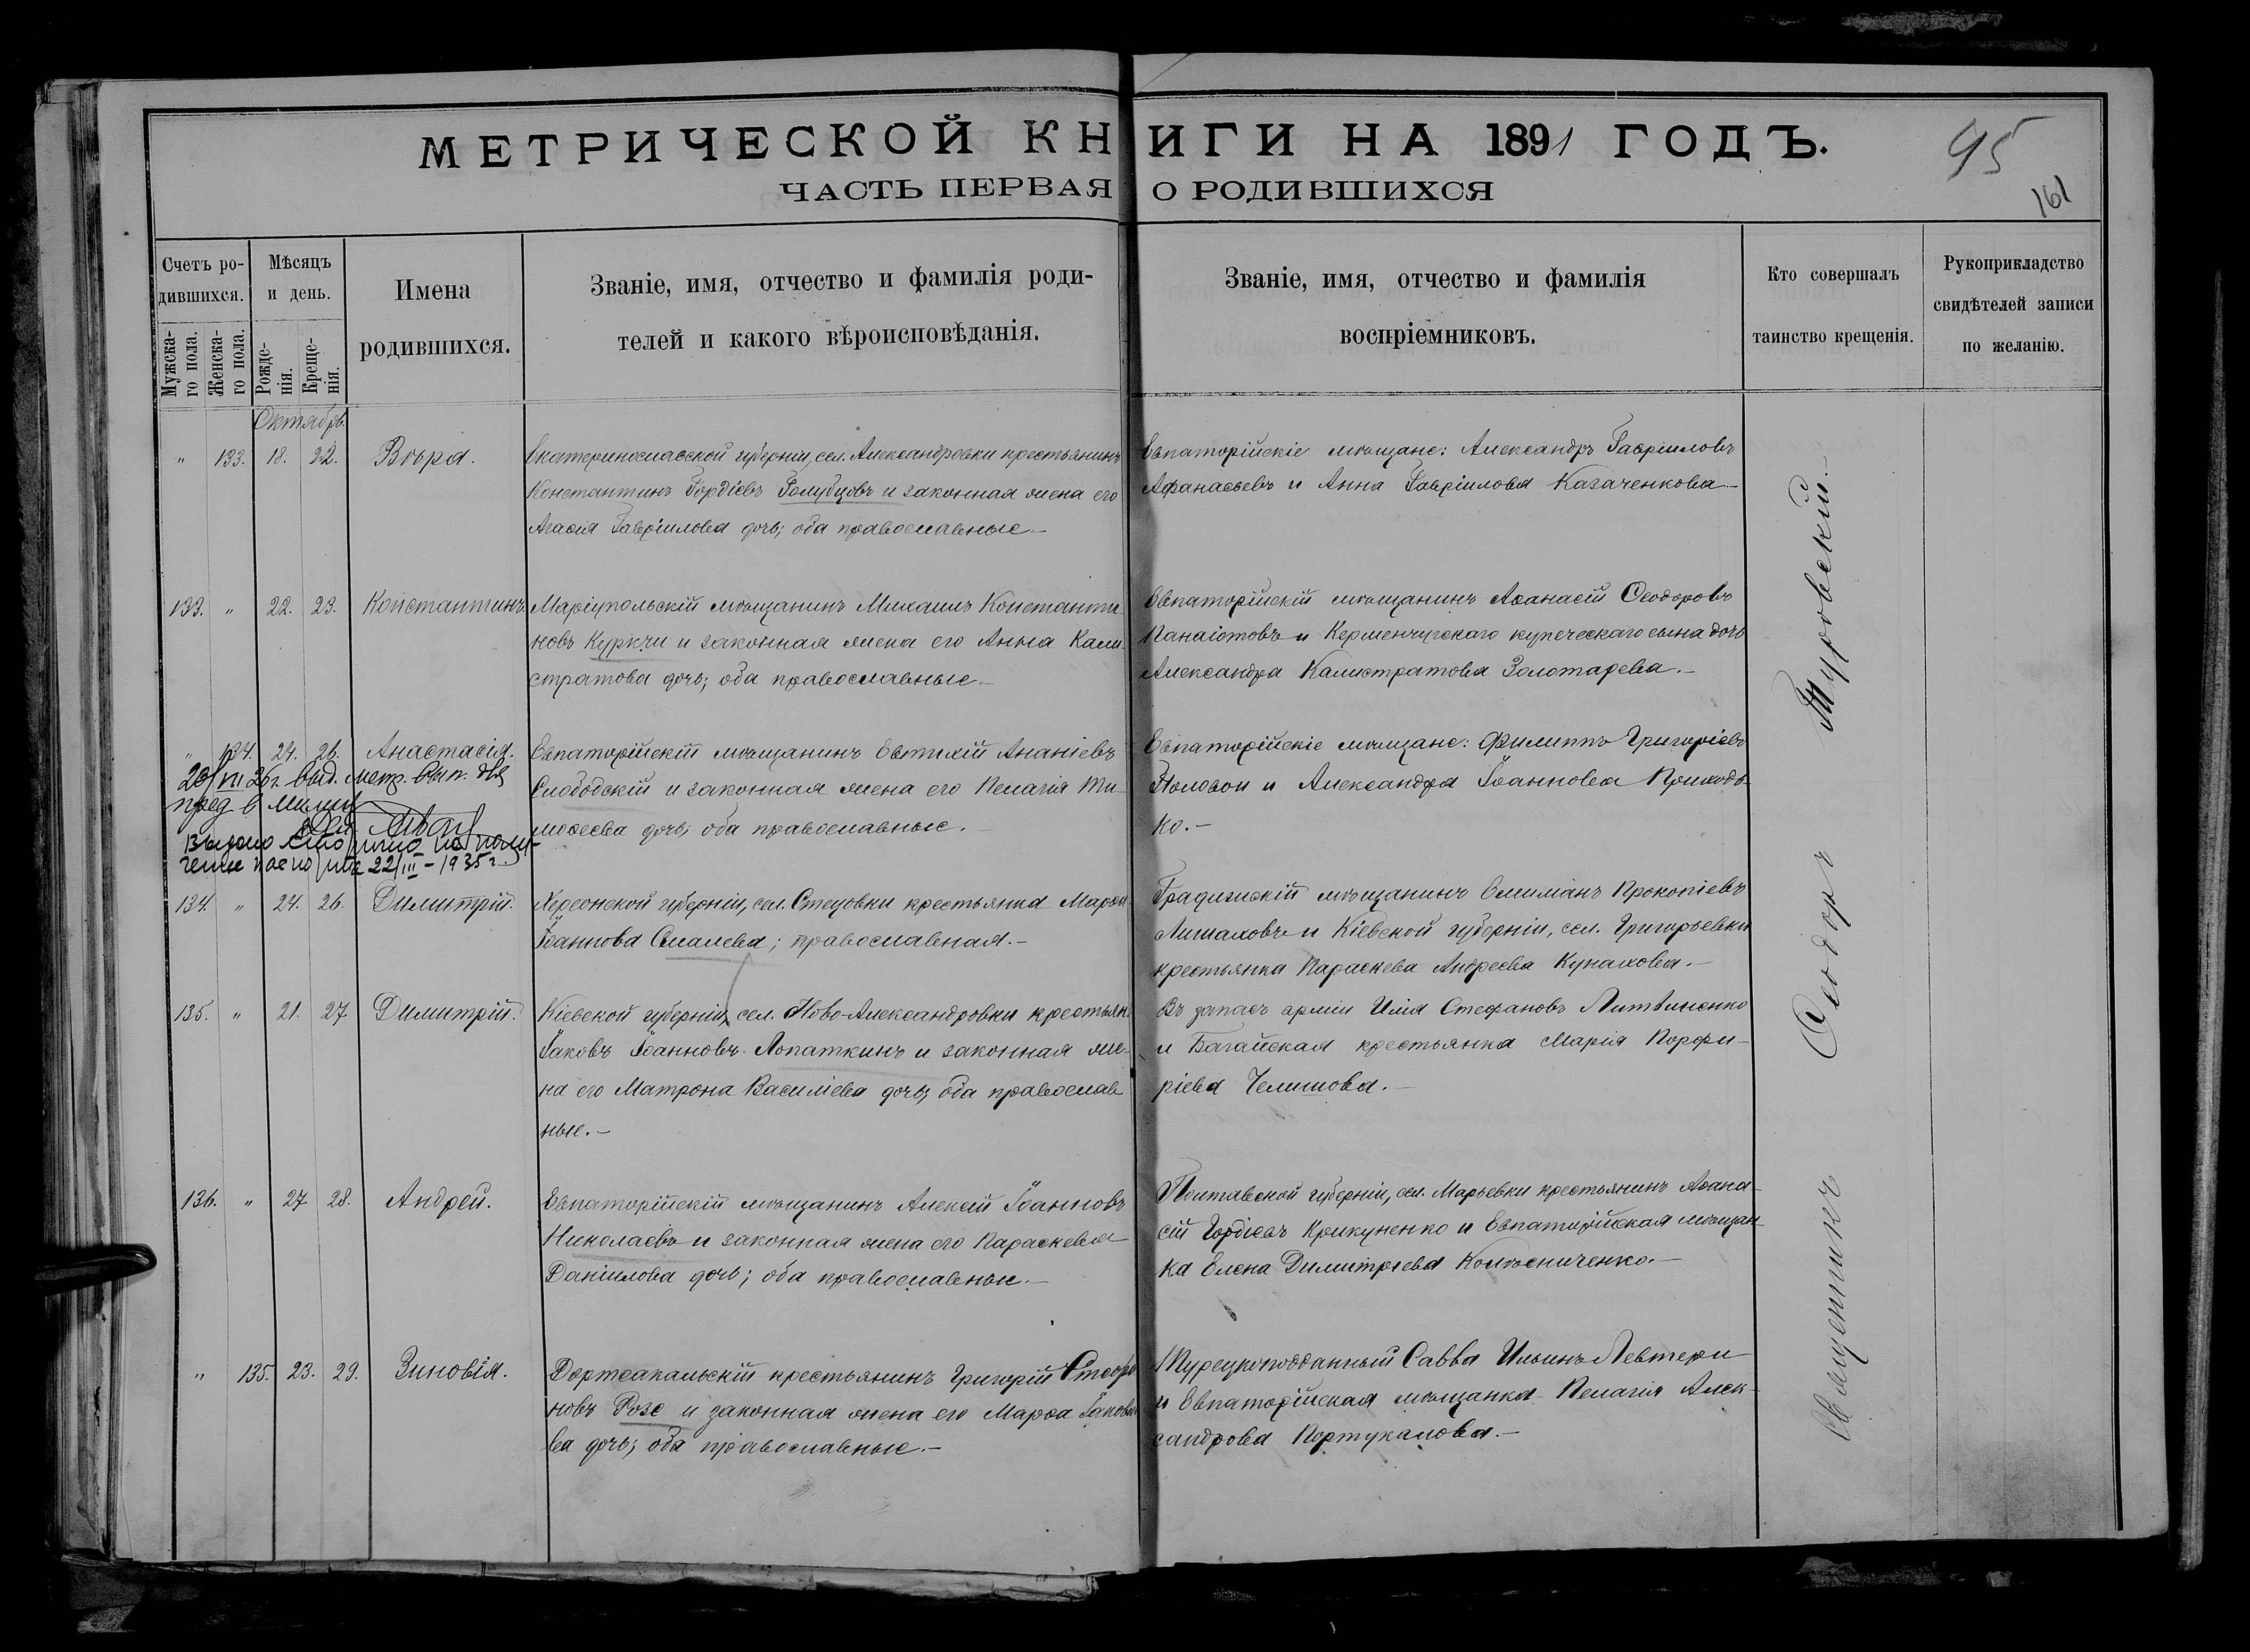 МЕТРИЧЕСКОЙ КНИГИ НА 1891 ГОДЪ.
95
ЧАСТЬ ПЕРВАЯ О РОДИВШИХСЯ
161
Счетъ ро-
дившихся.
Мужска-
го пола.
Женска-
го пола.
Мѣсяцъ
и день.
Рожде-
нія.
Креще-
нія.
Имена
родившихся.
Званіе, имя, отчество и фамилія роди-
телей и какого вѣроисповѣданія.
Званіе, имя, отчество и фамилія
воспріемниковъ.
Кто совершалъ
таинство крещенія.
Рукоприкладство
свидѣтелей записи
по желанію.
Октябрь.
" 133. 18. 22. Вѣра.
Екатеринославской губерніи, сел. Александровки крестьянинъ
Константинъ Гордіевъ Голубцовъ и законная жена его
Агафія Гавріилова дочь; оба православные.—
Евпаторійскіе мѣщане: Александръ Гавріиловъ
Афанасьевъ и Анна Гавріилова Казаченкова.—
133. " 22. 23. Константинъ.
Маріупольскій мѣщанинъ Михаилъ Константи-
новъ Куркчи и законная жена его Анна Кали-
стратова дочь; оба православные.—
Евпаторійскій мѣщанинъ Аѳанасій Ѳеодоровъ
Панаіотовъ и Керменчугскаго купеческаго сына дочь
Александра Калистратова Золотарева.—
" 134. 24. 26. Анастасія.
Евпаторійскій мѣщанинъ Евтихій Ананіевъ
Слободскій и законная жена его Пелагія Ти-
моѳеева дочь; оба православные.
Евпаторійскіе мѣщане: Филиппъ Григоріевъ
Половой и Александра Іоаннова Приходь-
ко.—
20/VII 26 г. выд. метр. вып. для
пред в милиц
Выдано на полу-
чение паспорта 22/III – 1935 г.
134. " 24. 26. Димитрій.
Херсонской губерніи, сел. Стецовки крестьянка Марѳа
Іоаннова Смалева; православная.—
Градижскій мѣщанинъ Емиліанъ Прокопіевъ
и Кіевской губерніи, сел. Григорьевки
крестьянка Параскева Андреева Кунахова.—
135. " 21. 27. Димитрій.
Кіевской губерніи, сел. Ново-Александровки крестьян.
Іаковъ Іоанновъ Лопаткинъ и законная же-
на его Матрона Василіева дочь; оба православ-
ные.—
Въ запасъ арміи Илія Стефановъ Литвиненко
и Багайская крестьянка Марія Порфи-
ріева Челишова.—
136. " 27. 28. Андрей.
Евпаторійскій мѣщанинъ Алексій Іоанновъ
Николаевъ и законная жена его Параскева
Даніилова дочь; оба православные.—
Полтавской губерніи, сел. Марьевки крестьянинъ Аѳана-
сій Гордіевъ Крикуненко и Евпаторійская мѣщан-
ка Елена Димитріева Колѣсниченко.—
" 135. 23. 29. Зиновія.
Дортсакальскій крестьянинъ Григорій Стефа-
новъ Розе и законная жена его Марѳа Іаковле-
ва дочь; оба православные.—
Турецкоподданный Савва Ильинъ Левтери
и Евпаторійская мѣщанка Пелагія Алек-
сандрова Портукалова.—
Священникъ Ѳеодоръ Туровскій.